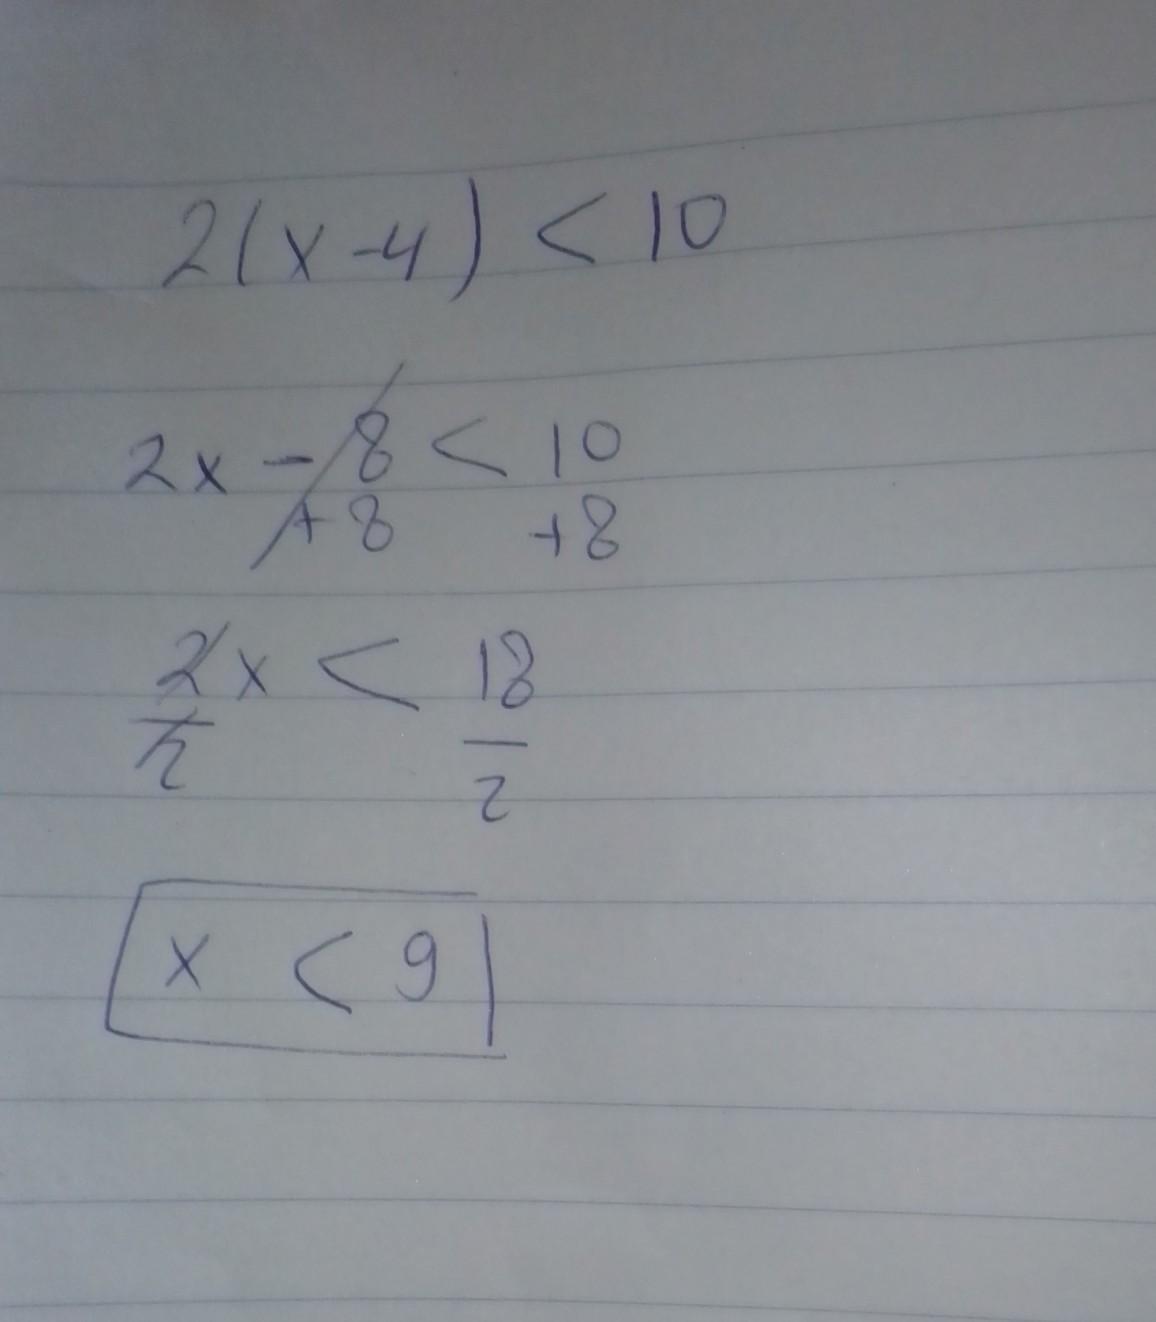 2(x-4) < 10
2x - 8 < 10
+8 +8
2x < 18
2 2
x < 9